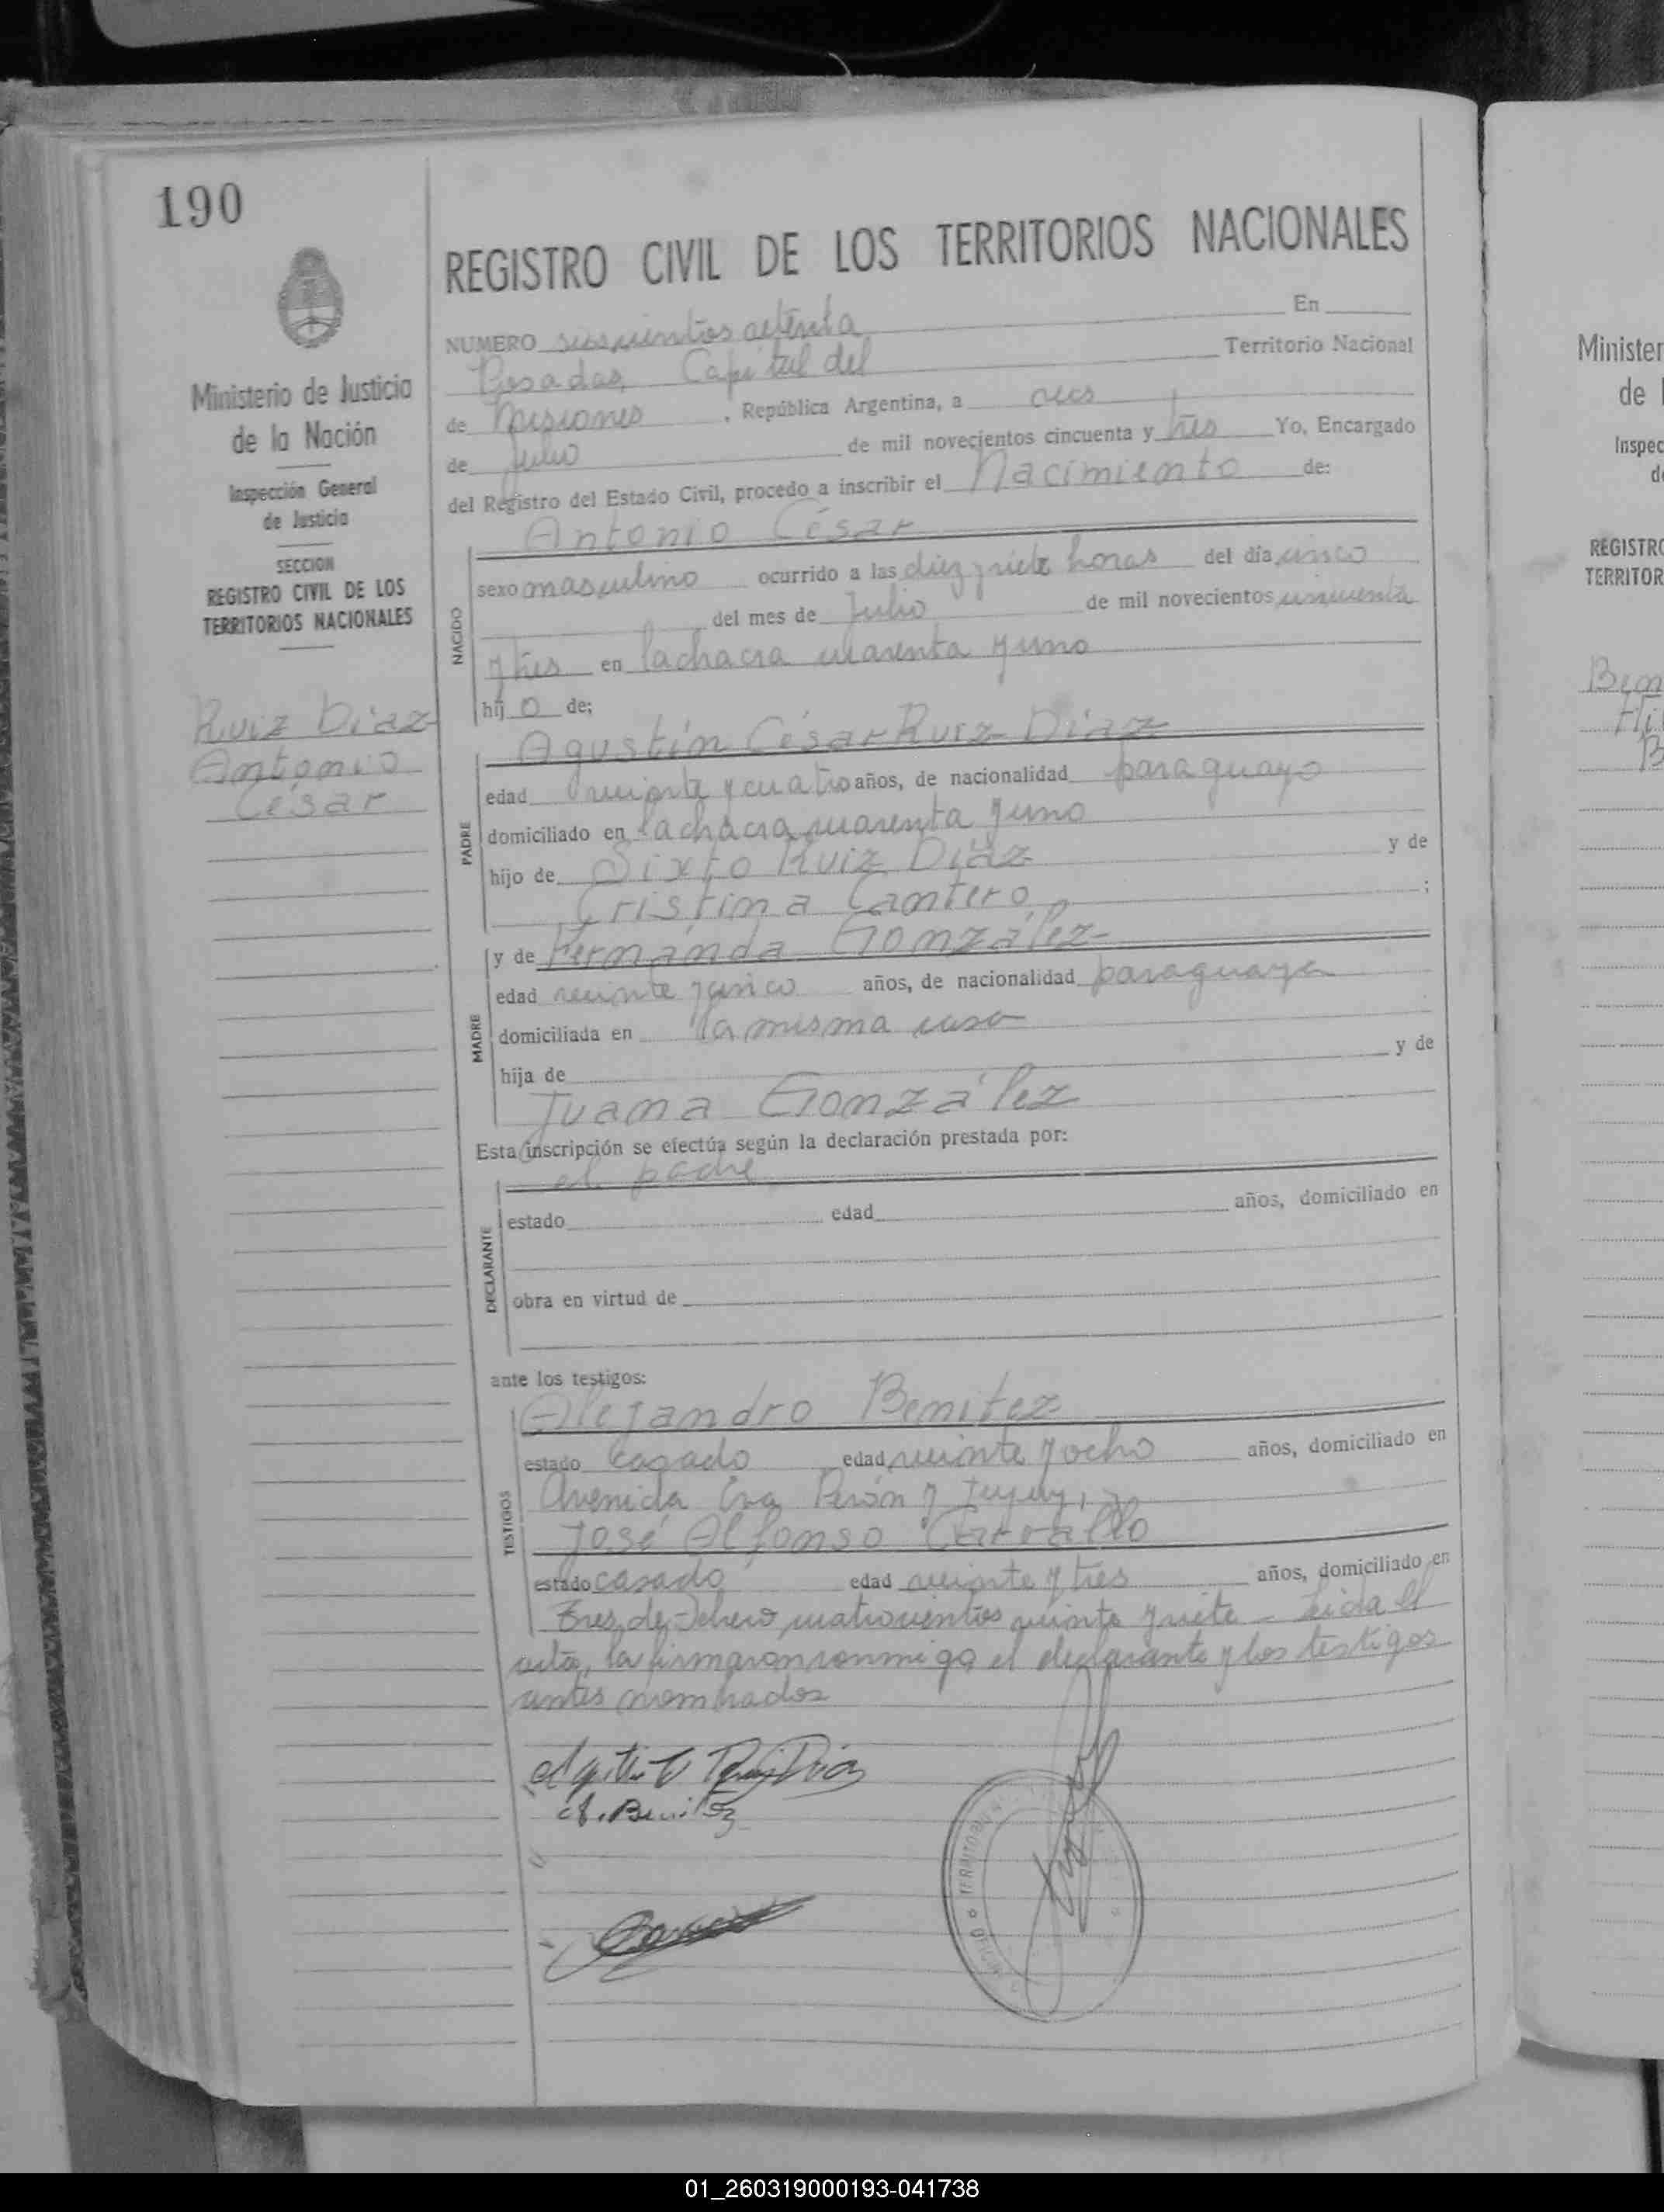 190
REGISTRO CIVIL DE LOS TERRITORIOS NACIONALES
Ministerio de Justicia
de la Nación
Inspección General
de Justicia
SECCION
REGISTRO CIVIL DE LOS
TERRITORIOS NACIONALES
Ruiz Diaz
Antonio
César
NUMERO seiscientos setenta En
Posadas, Capital del Territorio Nacional
de Misiones, República Argentina, a seis
de Julio de mil novecientos cincuenta y tres Yo, Encargado
del Registro del Estado Civil, procedo a inscribir el Nacimiento de:
NACIDO
Antonio César
sexo masculino ocurrido a las diez y siete horas del día cinco
del mes de Julio de mil novecientos cincuenta
y tres en la chacra cuarenta y uno
hijo de:
PADRE
Agustín César Ruiz Díaz
edad veinte y cuatro años, de nacionalidad paraguayo
domiciliado en la chacra cuarenta y uno
hijo de Sixto Ruiz Díaz y de
Cristina Cantero ;
MADRE
y de Fernánda González
edad veinte y cinco años, de nacionalidad paraguaya
domiciliada en la misma casa
hija de y de
Juana González
Esta inscripción se efectúa según la declaración prestada por:
DECLARANTE
el padre
estado edad años, domiciliado en
obra en virtud de
ante los testigos:
TESTIGOS
Alejandro Benitez
estado casado edad veinte y ocho años, domiciliado en
Avenida Eva Perón y Jujuy, y
José Alfonso Carvallo
estado casado edad veinte y tres años, domiciliado en
Tres de Febrero cuatrocientos veinte y siete - Leida el
acta, la firmaron conmigo el declarante y los testigos
antes nombrados
Ruiz Diaz
A. Benitez
TERRITORIOS
Minister
de
Inspec
de
REGISTRO
TERRITOR